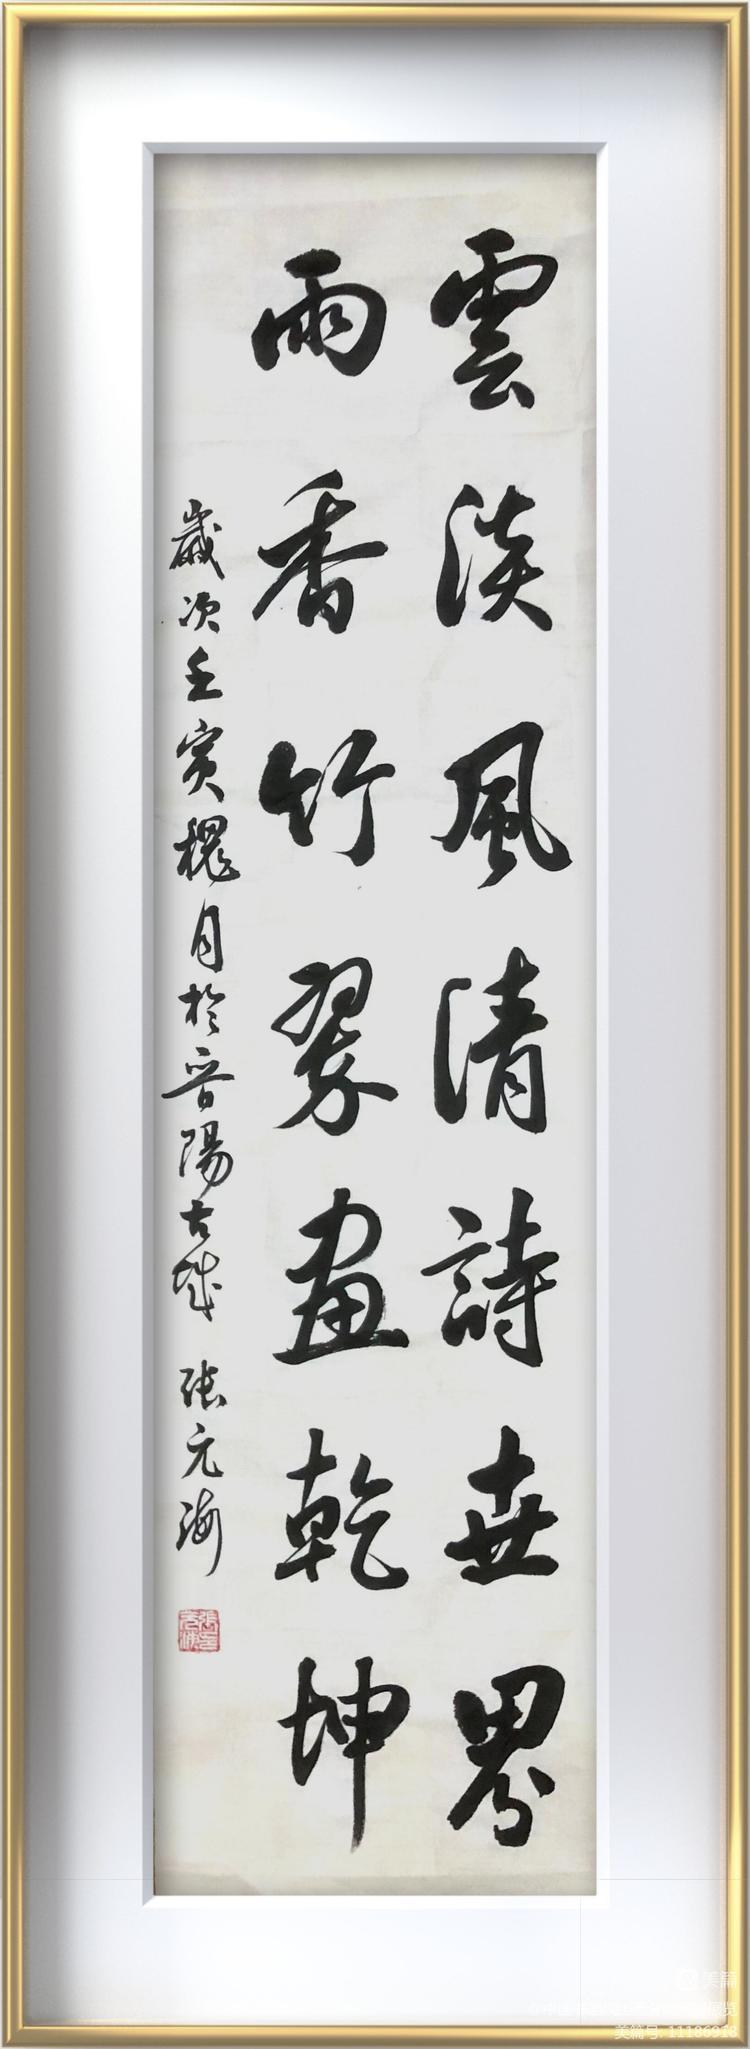 雲淡風清詩世界
雨香竹翠畫乾坤
歲次壬寅槐月於晉陽古城 張元海
張元海印
美篇
美篇号: 11186918